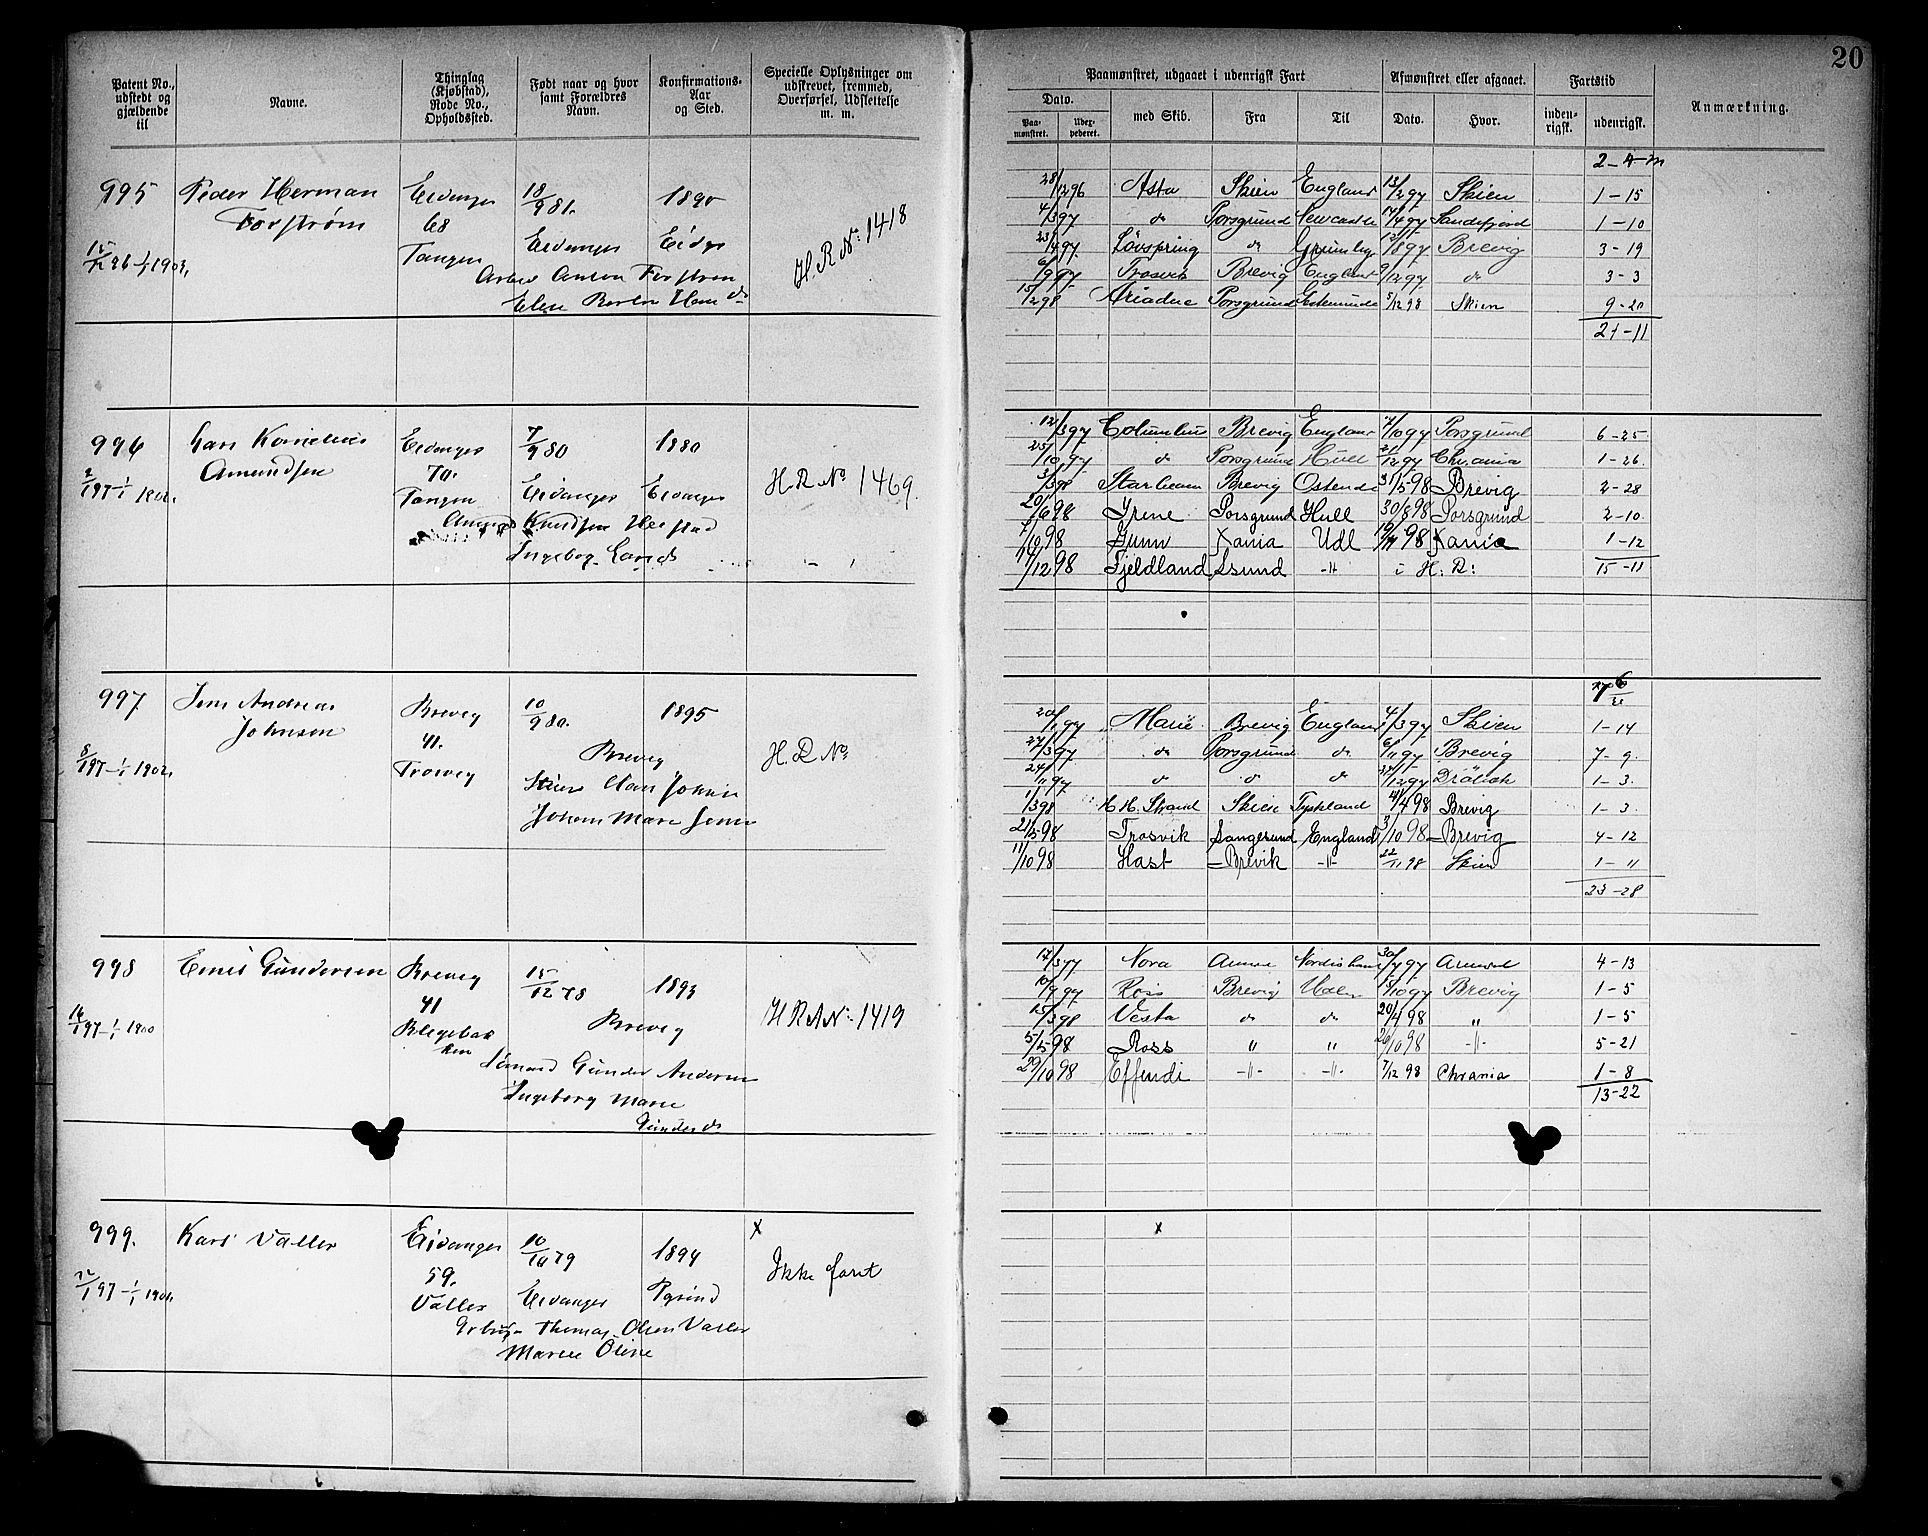 20
Patent No., udstedt og gjældende til
Navne.
Thinglag (Kjøbstad), Rode No., Opholdssted.
Født naar og hvor samt Forældres Navn.
Konfirmations-Aar og Sted.
Specielle Oplysninger om udskrevet, fremmed, Overførsel, Udslettelse m. m.
Paamønstret, udgaaet i udenrigsk Fart
Afmønstret eller afgaaet.
Fartstid
Anmærkning.
Dato.
Paa-mønstret.
Udex-pederet.
med Skib.
Fra
Til
Dato.
Hvor.
inden-rigsk.
udenrigsk.
995 Peder Herman Eidanger 18/9 81. 1890
68
Tangen Eidanger Eidgr
H. R. No: 1418
2-4-m
28/12 96 Asta Skien England 12/2 97 Skien 1-15
4/3 97 do Porsgrund Newcastle 14/4 97 Sandefjord 1-10
23/4 97 Løvspring do Grimsby 8 97 Brevig 3-19
6/9 97 Trosvik Brevig England 9/12 97 do 3-3
15/2 98 Ariadne Porsgrund 5/12 98 Skien 9-20
21-11
996 Lars Kornelius Eidanger 7/9 80 1880
Amundsen 70.
2/1 97 1/1 1902. Tangen Eidanger Eidanger
H. R. No 1469.
Amund Knudsen
Ingeborg Larsd
12/3 97 Columbus Brevig England 4/10 97 Porsgrund 6-25
25/10 97 do Porsgrund Hull 21/12 97 Chr.ania 1-26.
3/3 98 Starbeam Brevig Ostende 31/5 98 Brevig 2-28
20/6 98 Irene Porsgrund Hull 30/8 98 Porsgrund 2-10.
7/10 98 Gunn Xania Udl 19/11 98 Xania 1-12
14/12 98 Fjeldland Lsund -"- i H. R: 15-11
997. Jens Andreas Brevig 10/9 80. 1895
Johnsen 41.
8/1 97 - 1/1 1902. Brevig
H R No
20/1 97 Marie Brevig England 4/3 97 Skien 1-14
27/3 97 do Porsgrund do 6/11 97 Brevig 7-9.
24/11 97 do do do 31/12 97 Dröbak 1-3.
1/3 98 H. H. Strand Skien Tyskland 4/4 98 Brevig 1-3
21/5 98 Trosvik Langesund England 3/10 98 Brevig 4-12
11/10 98 Hast Brevik -"- 22/11 98 Skien 1-11
23-28
998 Gundersen Brevig 15/12 78 1893
41
16/1 97 - 1/1 1900 Brevig
H R No: 1419
Gunder Andersen
Ingeborg Marie
Gundersd
Nora 30/7 97 4-13
10/9 97 Ross Brevig 15/10 97 Brevig 1-5
15/3 98 Vesta do do 20/4 98 " 1-5
5/5 98 Ross " " 26/10 98 -"- 5-21
29/10 98 Effendi -"- -"- 7/12 98 Chrania 1-8
13-22
999. Karl Valler Eidanger 10/10 79 1894
59.
Valler Eidanger Pgrund
x
Ikke faret
x
Thomas Olsen Valler
Maren Oline